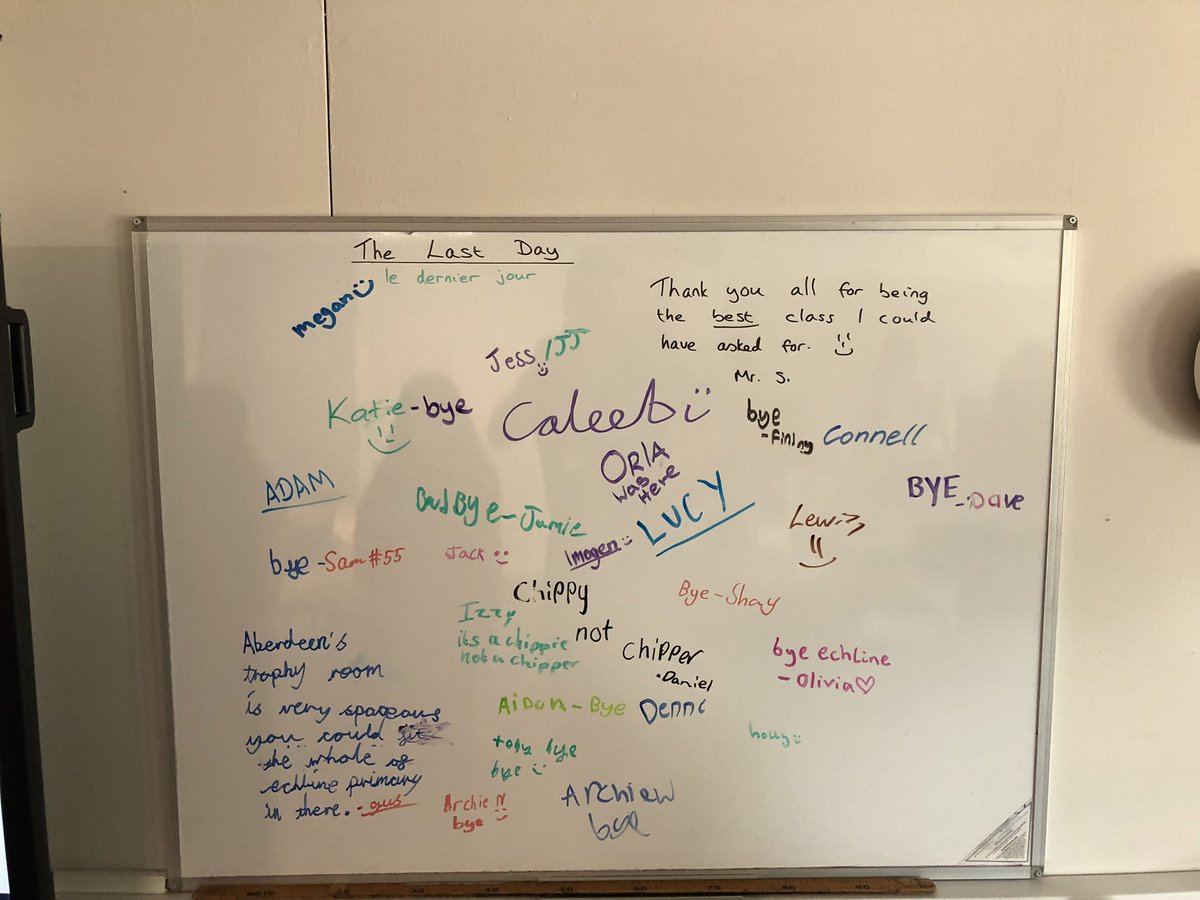 The Last Day
le dernier jour
megan
Thank you all for being
the best class I could
have asked for.
Mr. S.
Jess / JJ
Katie-bye
Caleeb
bye
-Finlay
Connell
ORLA
was
Here
ADAM
LUCY
BYE-Dave
GoodBye-Jamie
Lewis
Imogen
bye-Sam#55
Jack
Chippy
not
Chipper
•Daniel
Bye-Shay
Izzy
its a chippie
not a chipper
Aberdeen's
trophy room
is very spaceous
you could fit
the whole of
echline primary
in there. - Gus
bye echline
- Olivia♡
Aidan-Bye
toby bye
bye
holly
Archie N
bye
Archie W
bye
10 20 30 40 50 60 70 80 90